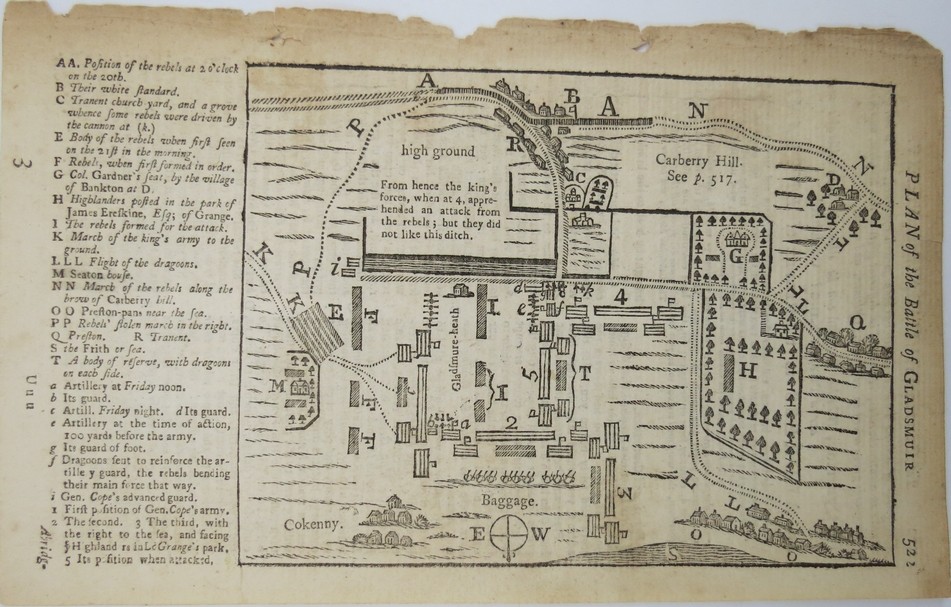 AA. Position of the rebels at 2 o'clock
on the 20th.
B Their white standard.
C Tranent church yard, and a grove
whence some rebels were driven by
the cannon at (k.)
E Body of the rebels when first seen
on the 21st in the morning.
F Rebels, when first formed in order.
G Col. Gardner's seat, by the village
of Bankton at D.
H Highlanders posted in the park of
James Erskine, Esq; of Grange.
I The rebels formed for the attack.
K March of the king's army to the
ground.
L L L Flight of the dragoons.
M Seaton house.
N N March of the rebels along the
brow of Carberry hill.
O O Preston-pans near the sea.
P P Rebels' stolen march in the right.
Q Preston. R Tranent.
S the Frith or sea.
T A body of reserve, with dragoons
on each side.
a Artillery at Friday noon.
b Its guard.
c Artill. Friday night. d Its guard.
e Artillery at the time of action,
100 yards before the army.
g Its guard of foot.
f Dragoons sent to reinforce the ar-
tillery guard, the rebels bending
their main force that way.
i Gen. Cope's advanced guard.
1 First position of Gen. Cope's army.
2 The second. 3 The third, with
the right to the sea, and facing
Highlanders in Le Grange's park.
5 Its position when attacked.
3
U u u
Abridg-
A
B
A
N
N
P
R
C
D
high ground
Carberry Hill.
See p. 517.
From hence the king's
forces, when at 4, appre-
hended an attack from
the rebels; but they did
not like this ditch.
L
G
K
P
i
K
E
F
I
d
e
f
4
L
L
Q
Gladsmure-heath
H
M
F
I
5
T
F
a
2
3
L
L
Baggage.
Cokenny.
E W
S
O
O
PLAN of the Battle of GLADSMUIR
522